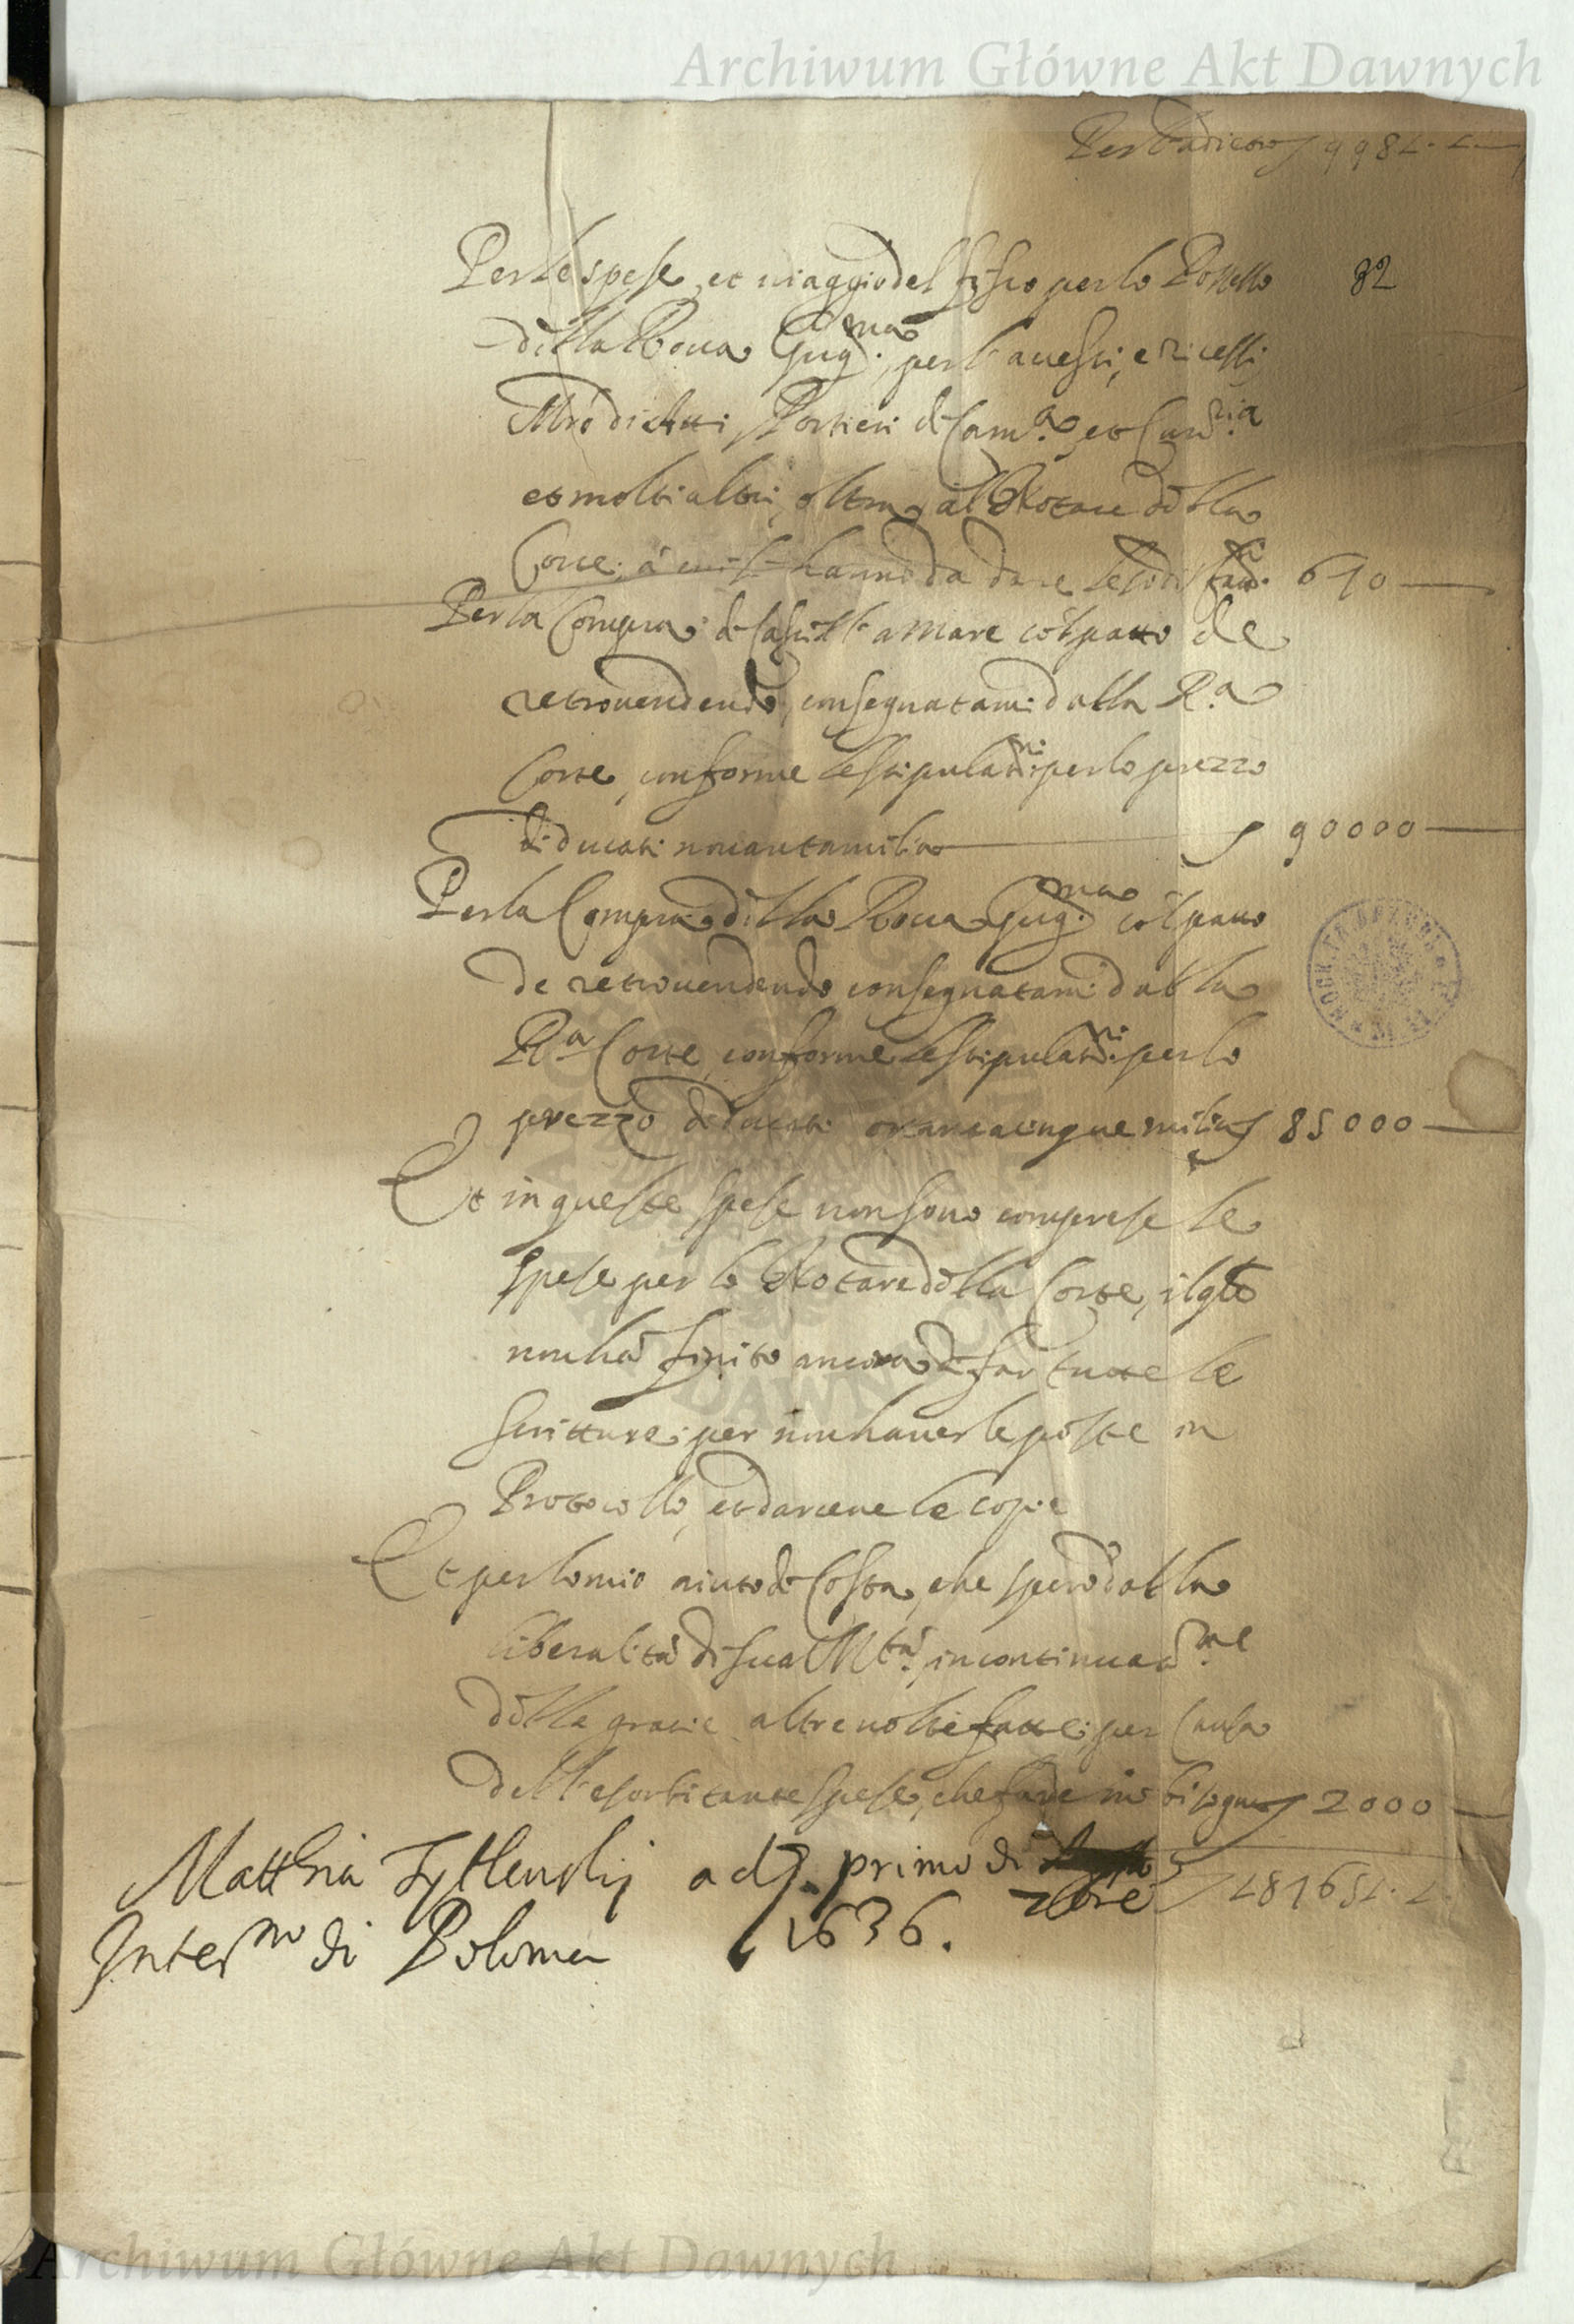 Archiwum Główne Akt Dawnych
Per
Per le spese, et viaggio del fisco per lo Possesso 82
della Rocca Gug.ma, per l'
Portieri di Cam.a, et
et molti altri, oltra al Notare della
Corte, à cui s'hanno da dare le 690
Per la Compra di Castell'a mare co'l patto de
retrovendendo, consegnatami dalla R.a
Corte, conforme le stipulat.ni per lo prezzo
di ducati novantamilia 90000
Per la Compra della Rocca Gug.ma co'l patto
de retrovendendo consegnatami dalla
R.a Corte, conforme le stipulat.ni per lo
prezzo di ducati ottantacinquemilia 85000
Et in queste spese non sono comprese le
spese per lo Notare della Corte, il qle
non ha finito ancora di far tutte le
scritture, per non haverle poste in
Protocollo, et darcene le copie
Et per lo mio aiuto di Costa, che spero dalla
liberalità di sua M.tà, in continuat.ne
delle gratie altre volte fatte, per causa
dell'esorbitante spese, che fare mi bisogna 2000
Matthia adj. primo di
7bre
Inter di Polonia 1636.
Archiwum Główne Akt Dawnych